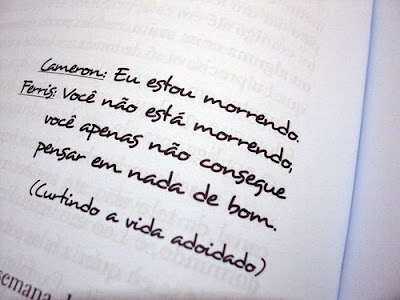 Cameron: Eu estou morrendo.
Ferris: Você não está morrendo,
você apenas não consegue
pensar em nada de bom.
(Curtindo a vida adoidado)
semana